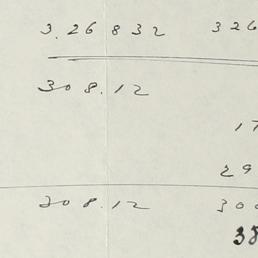 3.26832 326
308.12
17
29
308.12 300
38